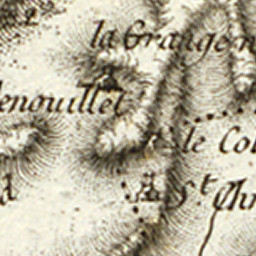 la Grange
enouillet
le Col
S.t Chr